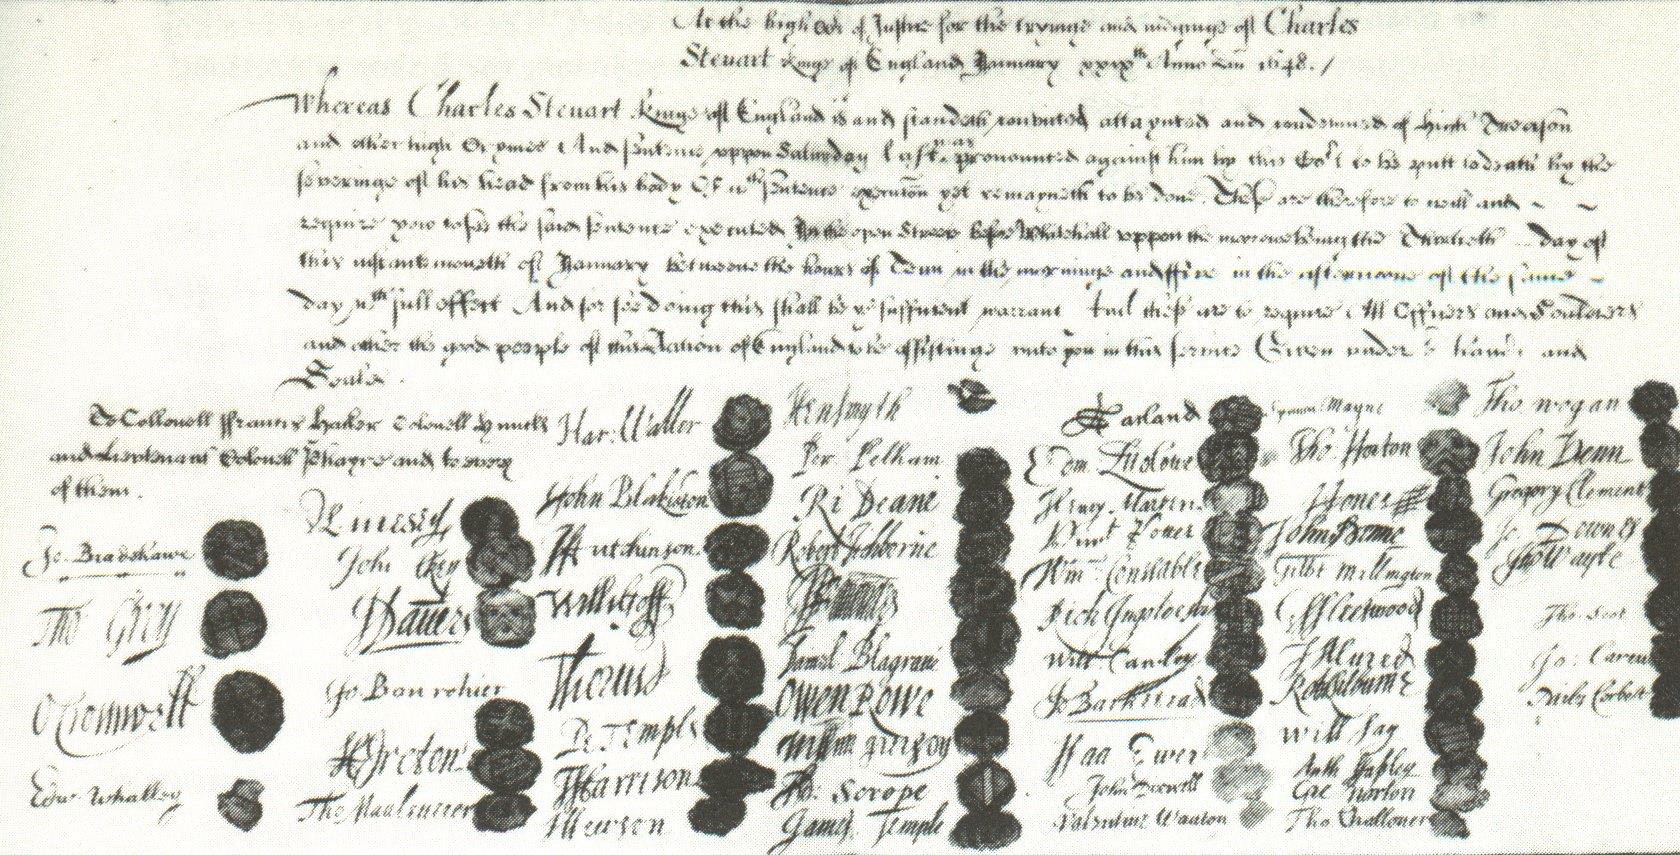 At the high Cort of Justice for the tryinge and iudginge of Charles
Steuart Kinge of England January xxixth Anno Dni 1648./
Whereas Charles Steuart Kinge of England is and standeth convicted attaynted and condemned of High Treason
and other high Crymes And sentence uppon Saturday last was pronounced against him by this Cort to be putt to death by the
severinge of his head from his body Of wch sentence execucon yet remayneth to be done These are therefore to will and
require you to see the said sentence executed In the open Streete before Whitehall uppon the morrowe being the Thirtieth day of
this instante moneth of January betweene the houres of Tenn in the morninge and ffive in the afternoone of the same
day wth full effect And for soe doing this shall be yor sufficient warrant And these are to require All Officers and Souldiers
and other the good people of this Nation of England to be assistinge unto you in this service Given under or hands and
Seales
To Collonell ffrancis Hacker Colonell Huncks
and Lieutenant Colonell Phayre and to every
of them.
Jo. Bradshawe
Tho Grey
O Cromwell
Edw. Whalley
M Livesey
John Okey
J Davers
Jo Bourchier
H Ireton
Tho Mauleverer
Har. Waller
John Blakiston
J Hutchinson
Willi Goff
Tho Pride
Pe Temple
T Harrison
J Hewson
Hen Smyth
Per. Pelham
Ri Deane
Robert Tichborne
H Edwardes
Daniel Blagrave
Owen Rowe
William Purefoy
Ad: Scrope
James Temple
A Garland
Edm. Ludlowe
Henry Marten
Vint Potter
Wm. Constable
Rich Ingoldesby
Will Cawley
Jo Barkstead
Isaa Ewer
John Dixwell
Valentine Wauton
Symon Mayne
Tho Horton
J Jones
John Penne
Gilbt Millington
G Fleetwood
J Alured
Rob Lilburne
Will Say
Anth Stapley
Gre Norton
Tho Challoner
Tho Wogan
John Venn
Gregory Clement
Jo Downes
Tho Wayte
Tho Scot
Jo: Carew
Miles Corbet